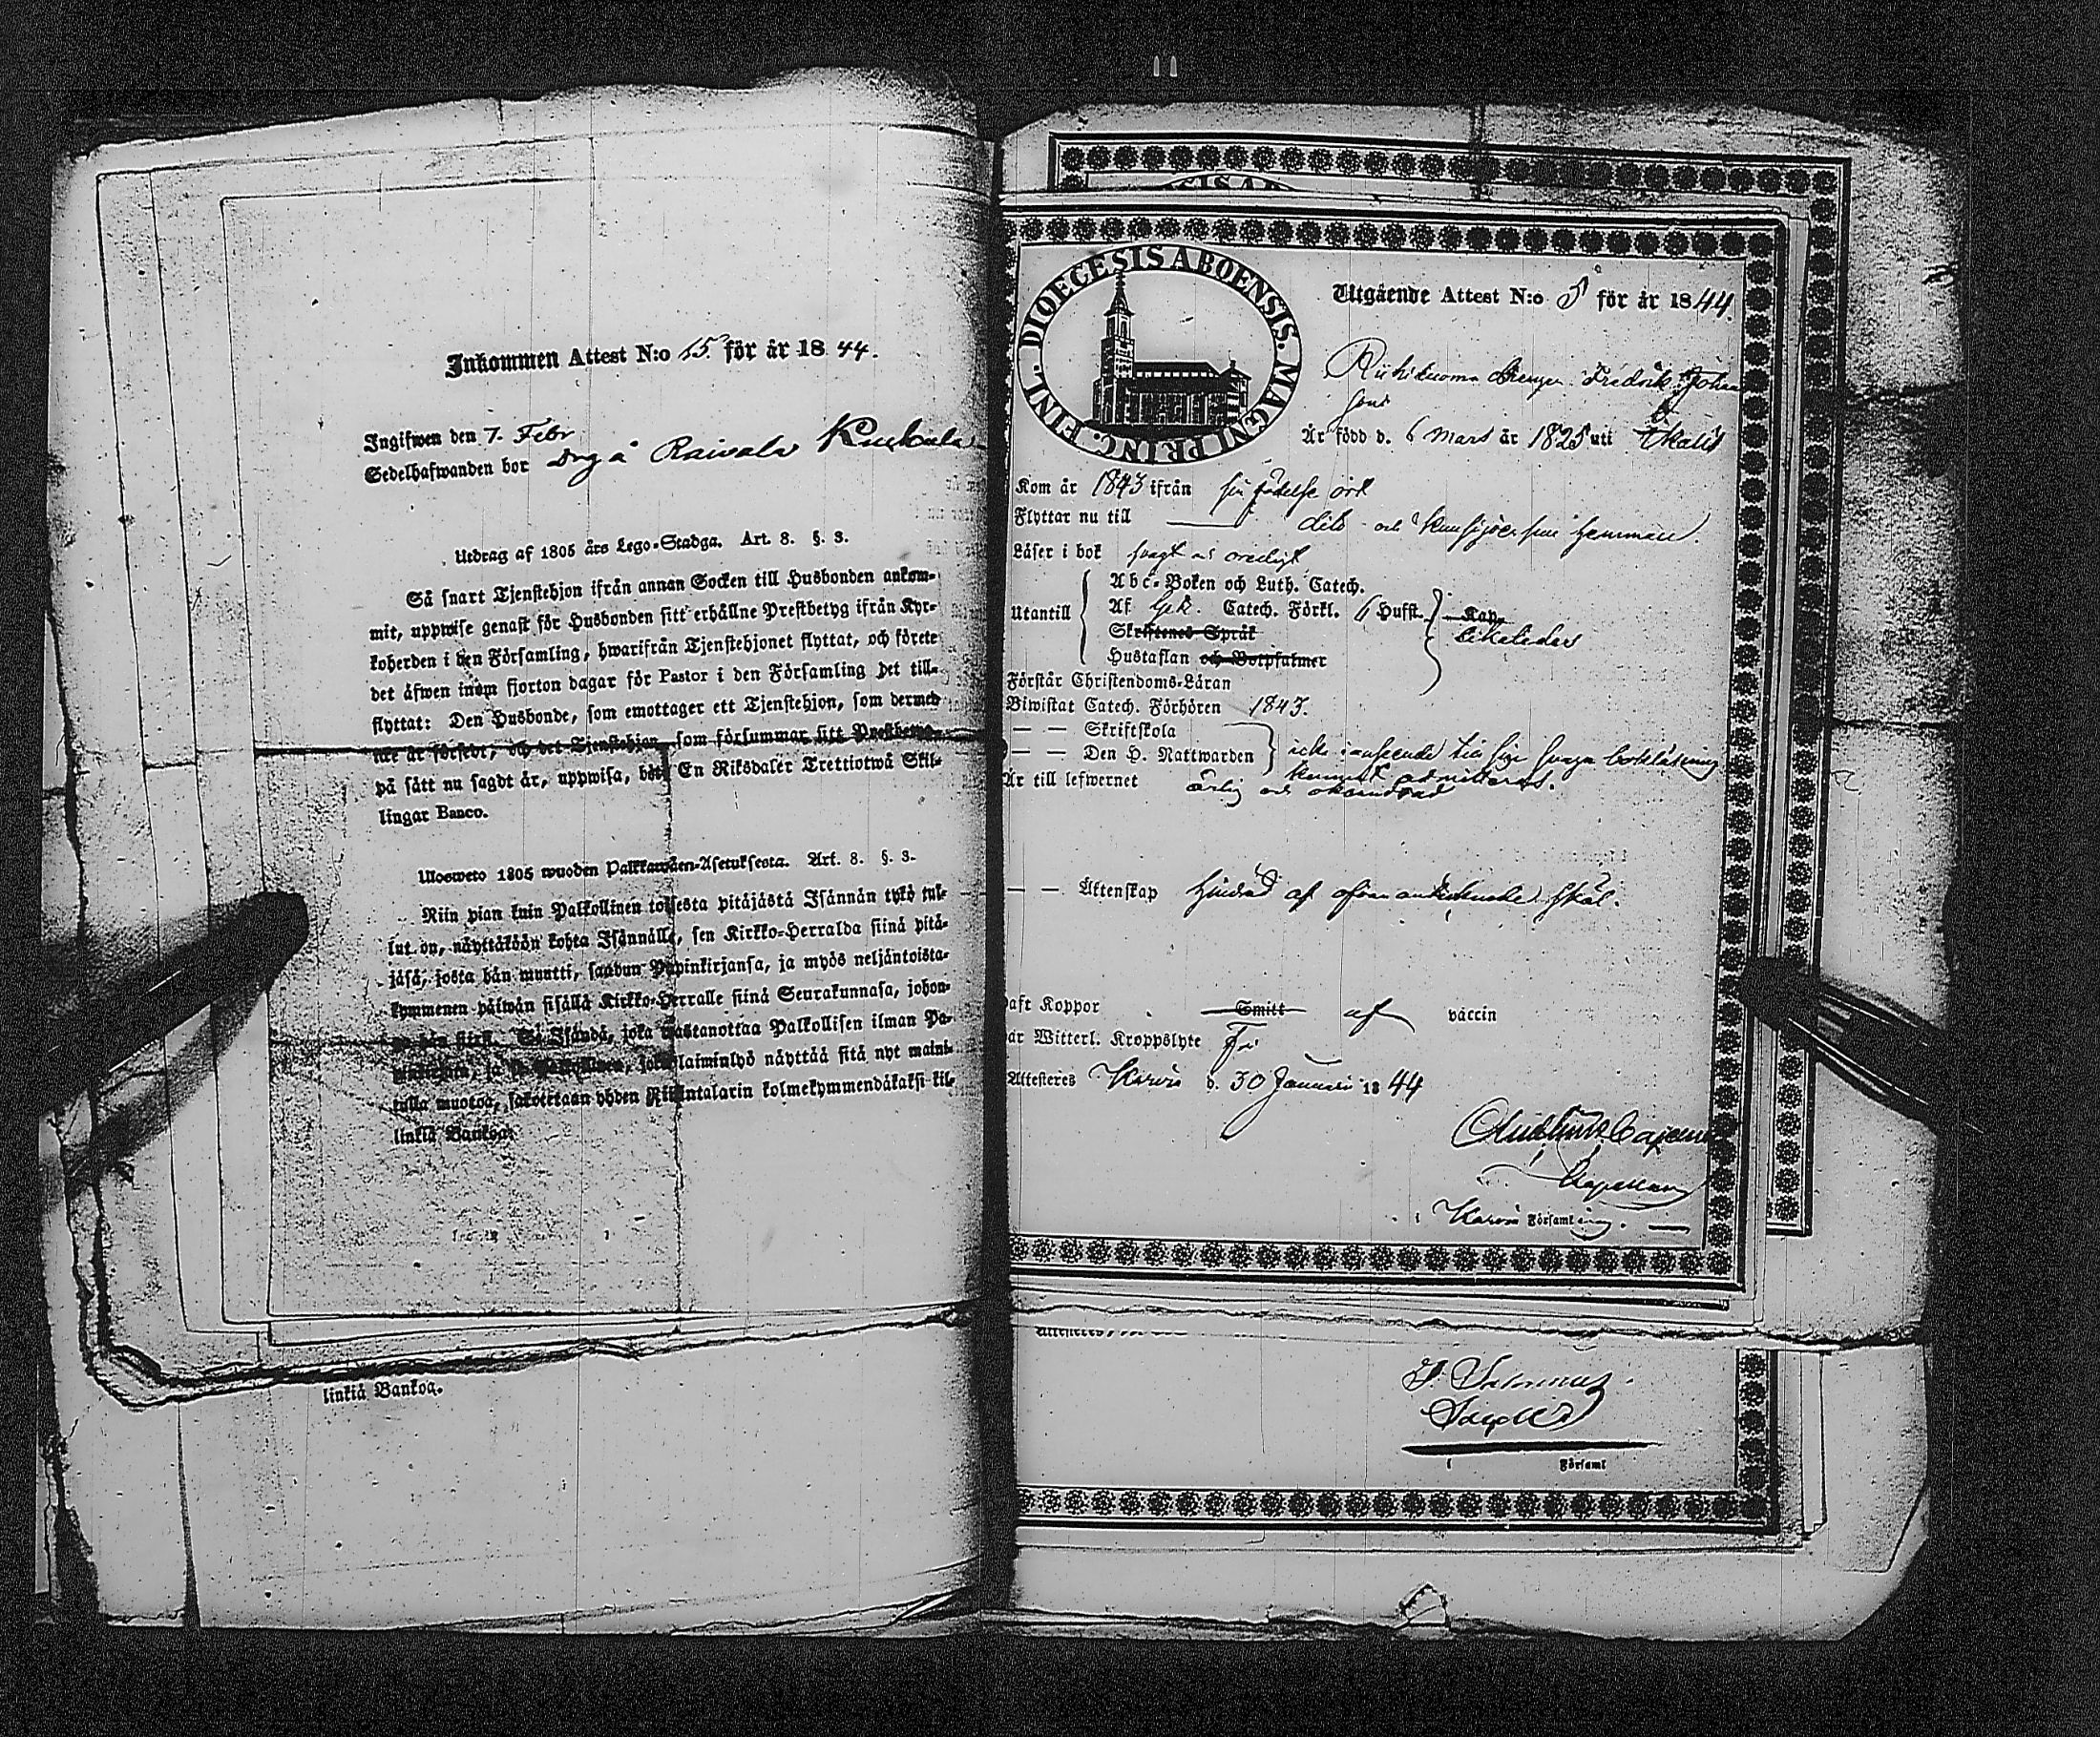 Inkommen Attest N:o 15. för år 1844.
Ingifwen den 7. Febr
Sedelhafwanden bor Dräg å Raivala
Utdrag af 1805 års Lego-Stadga. Art. 8. §. 3.
Så snart Tjenstehjon ifrån annan Socken till Husbonden ankom-
mit, uppwise genast för Husbonden sitt erhållne Prestbetyg ifrån Kyr-
koherden i den Församling, hwarifrån Tjenstehjonet flyttat, och förete
det äfwen inom fjorton dagar för Pastor i den Församling det till-
flyttat: Den Husbonde, som emottager ett Tjenstehjon, som dermed
icke är försedt, och det Tjenstehjon, som försummar sitt Prestbetyg,
på sätt nu sagdt är, uppwisa, böte En Riksdaler Trettiotwå Skil-
lingar Banco.
Ulosweto 1805 wuoden Palkkawäen-Asetuksesta. Art. 8. §. 3.
Niin pian kuin Palkollinen toisesta pitäjästä Isännän tykö tul-
lut on, näyttäköön kohta Isännälle, sen Kirkko-Herralda siinä pitä-
jäsä, josta hän muutti, saadun Papinkirjansa, ja myös neljäntoista-
kymmenen päiwän sisällä Kirkko-Herralle siinä Seurakunnasa, johon-
ga hän siirsi. Se Isändä, joka wastanottaa Palkollisen ilman Pa-
pinkirjata, ja se Palkollinen, joka laiminlyö näyttää sitä nyt maini-
tulla muotoa, sakotetaan yhden Riikintalarin kolmekymmendäkaksi kil-
linkiä Bankoa.
linkiä Bankoa.
DIOECESIS ABOENSIS. MAGNI PRINC. FINL.
Utgående Attest N:o 5 för år 1844.
Drengen Fredrik Johans
son
Är född d. 6 Mars år 1825 uti
Kom år 1843 ifrån sin födelse ort
Flyttar nu till dito och
Läser i bok svagt och oredigt
Utantill
Abc-Boken och Luth. Catech.
Af Catech. Förkl. 6 Hufst. Kap.
Skriftenes Språk likaledes
Hustaflan och Botpsalmer
Förstår Christendoms-Läran
Biwistat Catech. Förhören 1843.
— — Skriftskola
— — Den H. Nattwarden icke i anseende till sin svaga bokläsning
kunnat admitteras.
Är till lefwernet ärlig och
— — Äktenskap hindrad af ofvan antecknade skäl.
haft Koppor Smitt af vaccin
har Witterl. Kroppslyte Fri
Attesteras Karvia d. 30 Januari 1844
Cajanus
Kapellan
i Karvia Församling.
i Församl